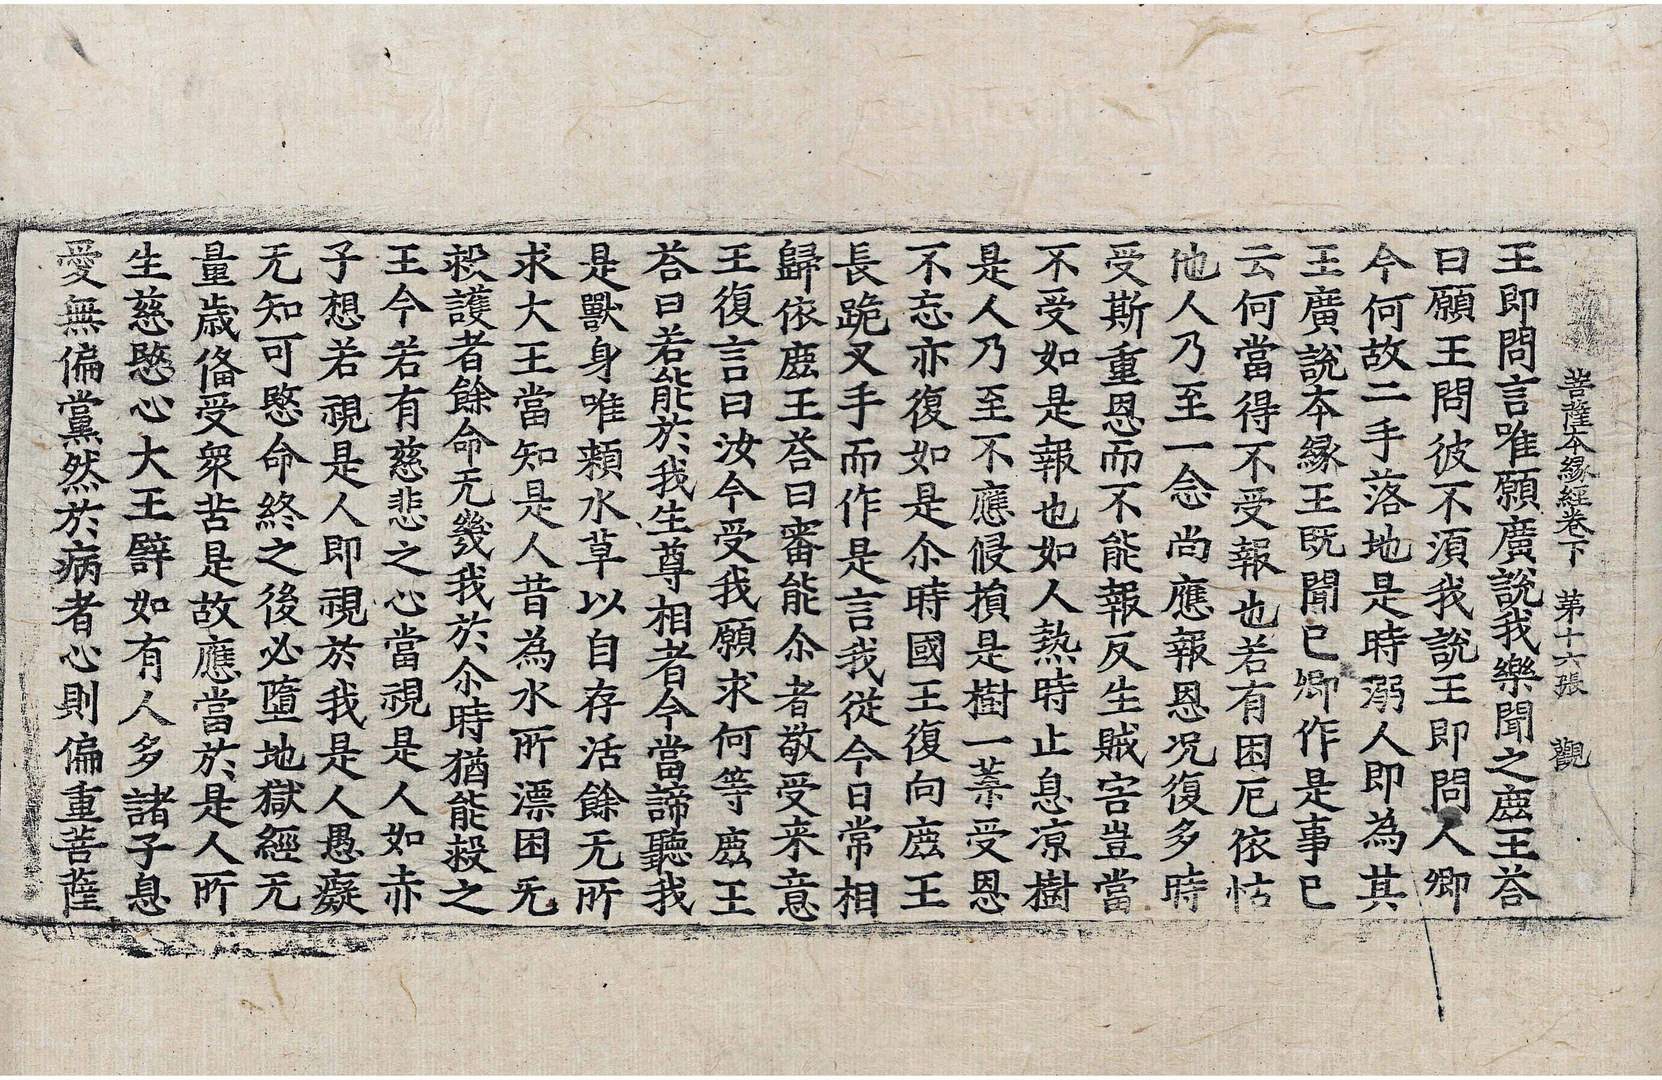 菩薩本縁經卷下 第十六張 觀
王即問言唯願廣說我樂聞之鹿王荅
曰願王問彼不須我說王即問人卿
今何故二手落地是時溺人即為其
王廣說本縁王旣聞已卿作是事已
云何當得不受報也若有困厄依怙
他人乃至一念尚應報恩况復多時
受斯重恩而不能報反生賊害豈當
不受如是報也如人熱時止息凉樹
是人乃至不應侵損是樹一葉受恩
不忘亦復如是尒時國王復向鹿王
長跪叉手而作是言我從今日常相
歸依鹿王荅曰審能尒者敬受来意
王復言曰汝今受我願求何等鹿王
荅曰若能於我生尊相者今當諦聽我
是獸身唯賴水草以自存活餘无所
求大王當知是人昔為水所漂困无
救護者餘命无幾我於尒時猶能救之
王今若有慈悲之心當視是人如赤
子想若視是人即視於我是人愚癡
无知可愍命終之後必墮地獄經无
量歲俻受衆苦是故應當於是人所
生慈愍心大王譬如有人多諸子息
愛無偏黨然於病者心則偏重菩薩